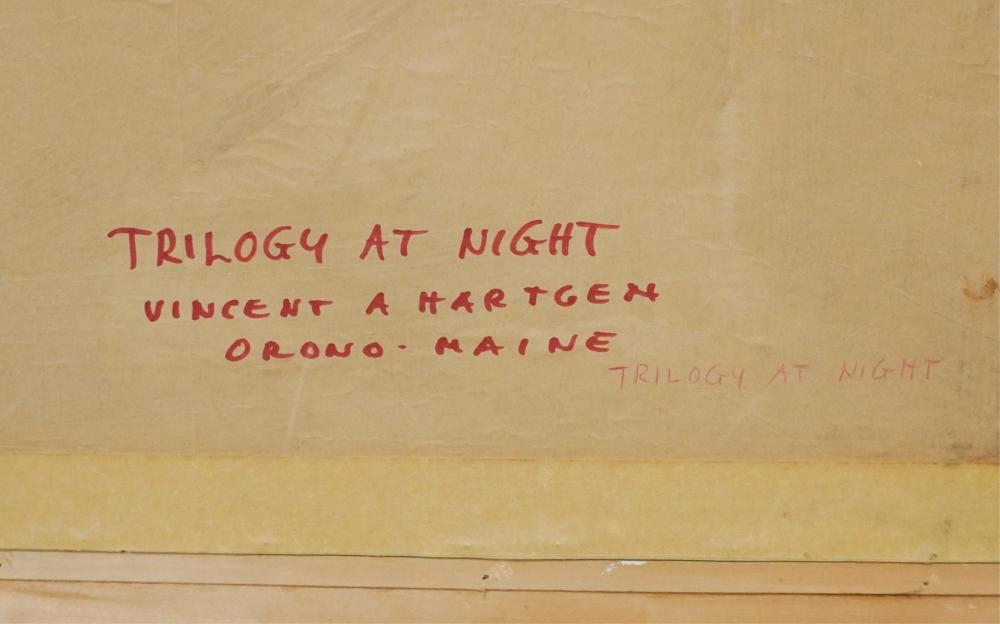 TRILOGY AT NIGHT
VINCENT A HARTGEN
ORONO - MAINE
TRILOGY AT NIGHT